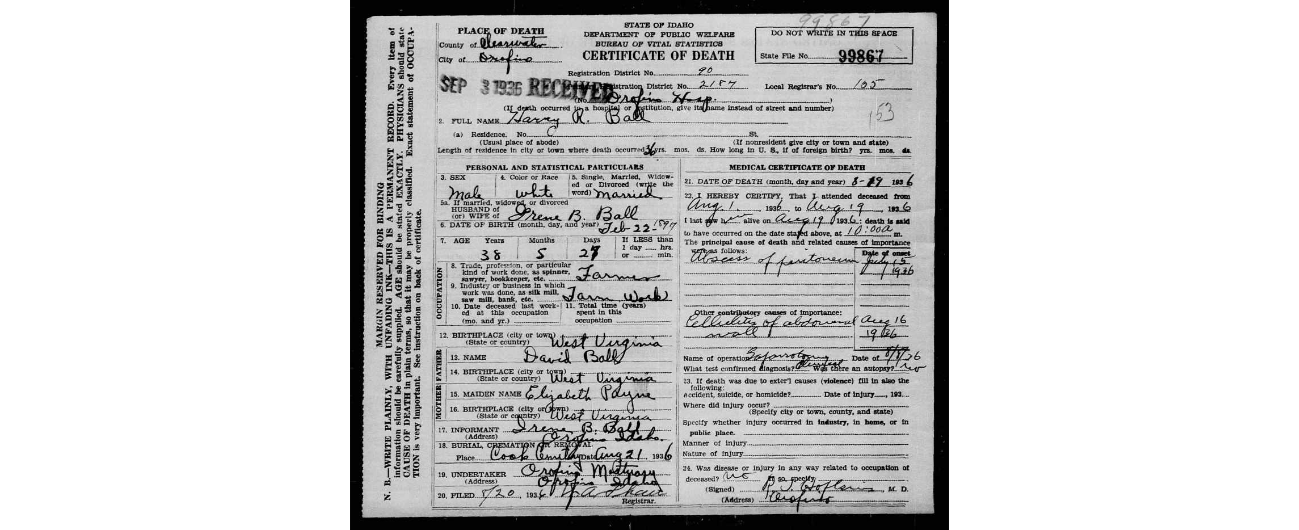 99867
STATE OF IDAHO
DEPARTMENT OF PUBLIC WELFARE
BUREAU OF VITAL STATISTICS
CERTIFICATE OF DEATH
DO NOT WRITE IN THIS SPACE
State File No. 99867
PLACE OF DEATH
County of Clearwater
City of Orofino
Registration District No. 90
Registration District No. 2187 Local Registrar's No. 105
SEP 3 1936 RECEIVED
(No. Orofino Hosp. )
(If death occurred in a hospital or institution, give its name instead of street and number)
153
2. FULL NAME Harry R. Ball
(a) Residence. No. St.
(Usual place of abode) (If nonresident give city or town and state)
Length of residence in city or town where death occurred 36 yrs. mos. ds. How long in U. S., if of foreign birth? yrs. mos. ds.
MARGIN RESERVED FOR BINDING
N. B.—WRITE PLAINLY, WITH UNFADING INK—THIS IS A PERMANENT RECORD. Every item of
information should be carefully supplied. AGE should be stated EXACTLY. PHYSICIANS should state
CAUSE OF DEATH in plain terms, so that it may be properly classified. Exact statement of OCCUPA-
TION is very important. See instruction on back of certificate.
PERSONAL AND STATISTICAL PARTICULARS
3. SEX 4. Color or Race 5. Single, Married, Widow-
ed or Divorced (write the
word) Married
Male White
5a. If married, widowed, or divorced
HUSBAND of
(or) WIFE of Irene B. Ball
6. DATE OF BIRTH (month, day, and year) Feb 22-1897
7. AGE Years Months Days If LESS than
1 day hrs.
or min.
38 5 27
OCCUPATION
8. Trade, profession, or particular
kind of work done, as spinner,
sawyer, bookkeeper, etc. Farmer
9. Industry or business in which
work was done, as silk mill,
saw mill, bank, etc. Farm Work
10. Date deceased last work-
ed at this occupation
(mo. and yr.)
11. Total time (years)
spent in this
occupation
12. BIRTHPLACE (city or town)
(State or country) West Virginia
FATHER
13. NAME David Ball
14. BIRTHPLACE (city or town)
(State or country) West Virginia
MOTHER
15. MAIDEN NAME Elizabeth Payne
16. BIRTHPLACE (city or town)
(State or country) West Virginia
17. INFORMANT Irene B. Ball
(Address) Orofino Idaho
18. BURIAL, CREMATION OR REMOVAL
Place Cook Date Aug 21, 1936
19. UNDERTAKER Orofino Mortuary
(Address) Orofino Idaho
20. FILED 8/20, 1936
Registrar.
MEDICAL CERTIFICATE OF DEATH
21. DATE OF DEATH (month, day and year) 8-19 1936
22. I HEREBY CERTIFY, That I attended deceased from
Aug 1 1936 to Aug 19, 1936
I last saw him alive on Aug 19 1936; death is said
to have occurred on the date stated above, at 10:00a m.
The principal cause of death and related causes of importance
were as follows: Date of onset
Abscess of peritoneum July 15
1936
Other contributory causes of importance:
Cellulitis of abdominal Aug 16
wall 1936
Name of operation Laparotomy Date of 8/8/36
What test confirmed diagnosis? Was there an autopsy? no
23. If death was due to exter'l causes (violence) fill in also the
following:
accident, suicide, or homicide? Date of injury , 193
Where did injury occur?
(Specify city or town, county, and state)
Specify whether injury occurred in industry, in home, or in
public place.
Manner of injury
Nature of injury
24. Was disease or injury in any way related to occupation of
deceased? no If so, specify
(Signed) M. D.
(Address) Orofino